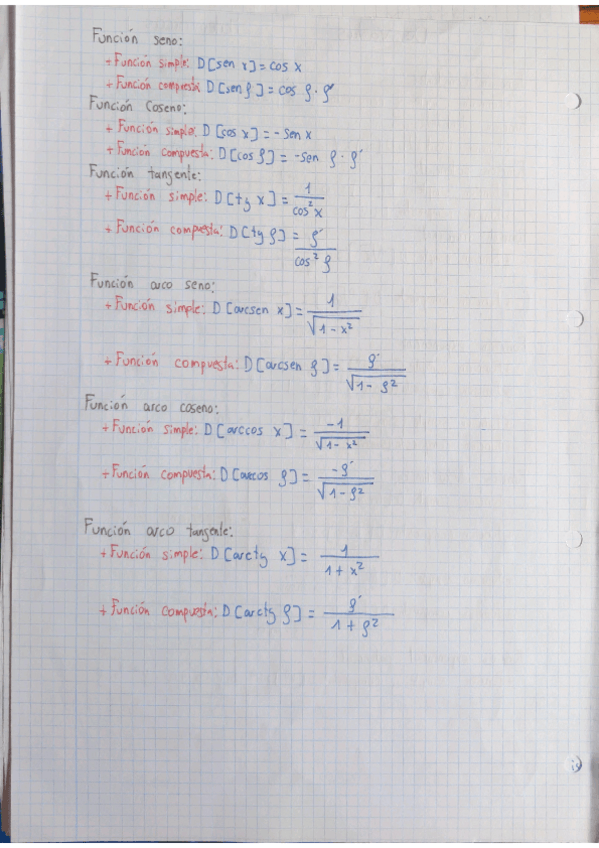 Función seno:
+ Función simple: D[sen x] = cos x
+ Función compuesta: D[sen f] = cos f · f'
Función Coseno:
+ Función simple: D[cos x] = - Sen x
+ Función compuesta: D[cos f] = -Sen f · f'
Función tangente:
+ Función simple: D[tg x] = 1 / cos² x
+ Función compuesta: D[tg f] = f' / cos² f
Función arco seno:
+ Función simple: D[arcsen x] = 1 / √(1 - x²)
+ Función compuesta: D[arcsen f] = f' / √(1 - f²)
Función arco coseno:
+ Función simple: D[arccos x] = -1 / √(1 - x²)
+ Función compuesta: D[arccos f] = -f' / √(1 - f²)
Función arco tangente:
+ Función simple: D[arctg x] = 1 / 1 + x²
+ Función compuesta: D[arctg f] = f' / 1 + f²